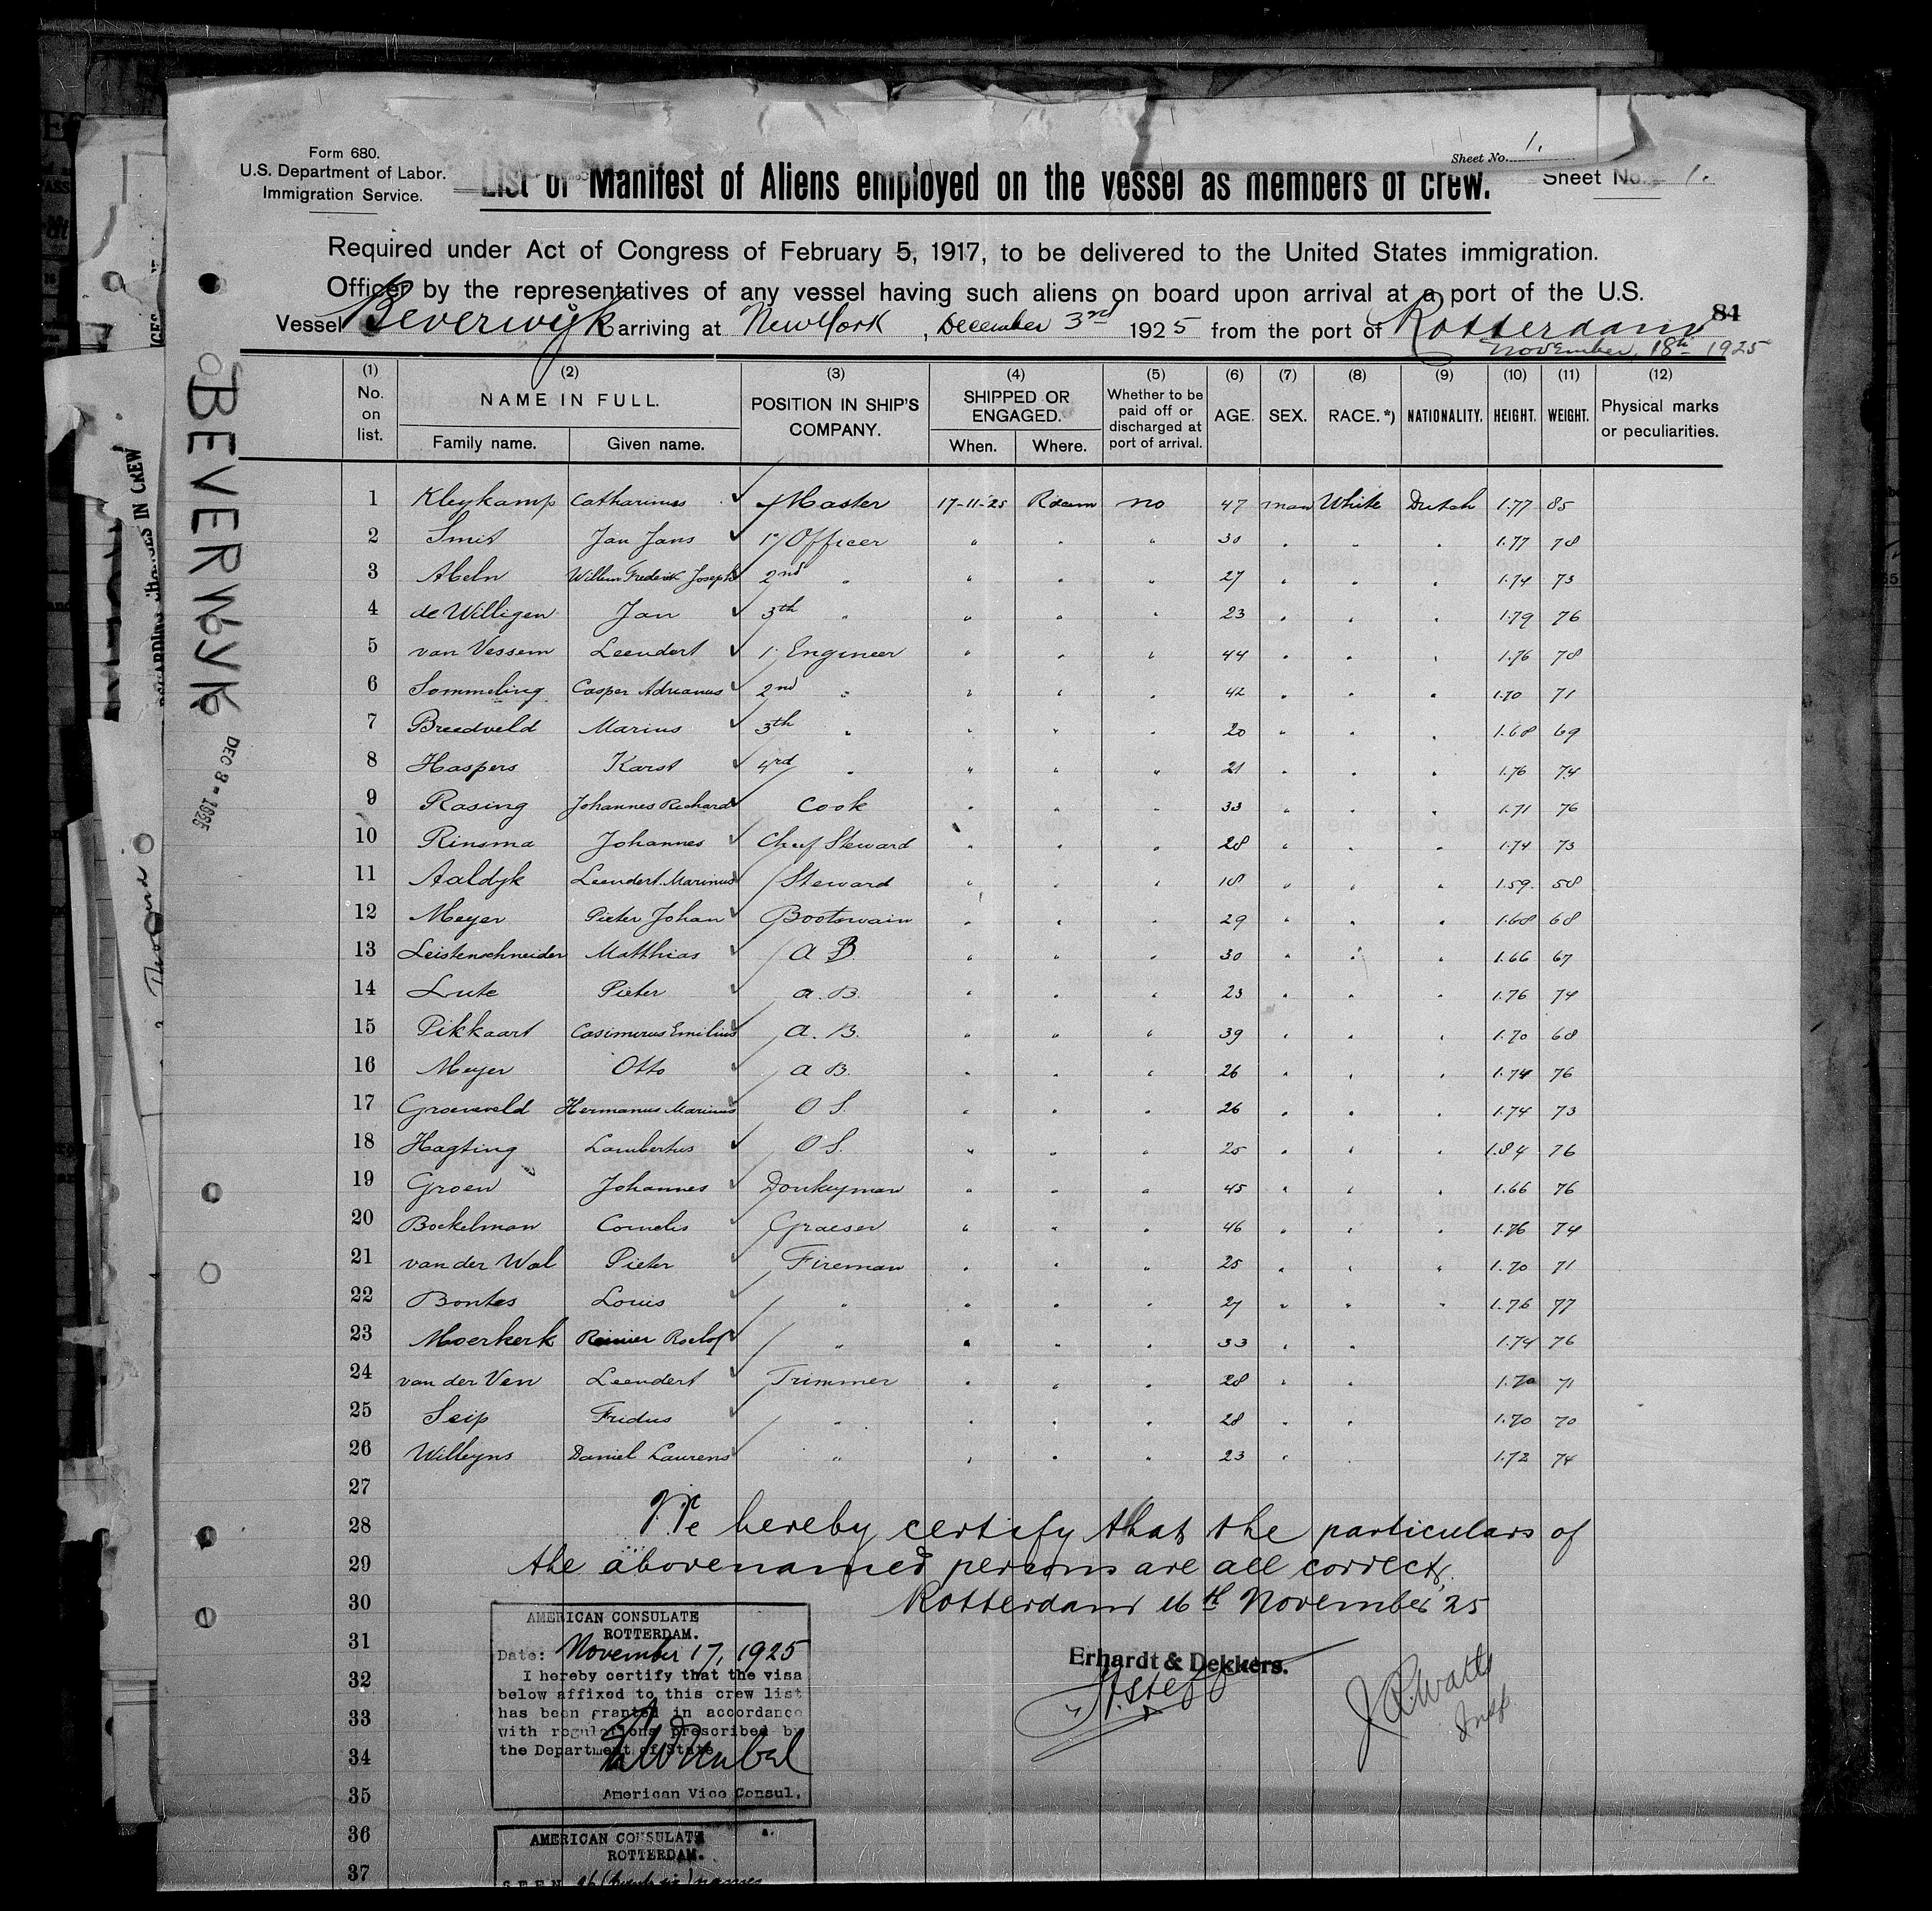 Sheet No. 1.
Form 680.
U.S. Department of Labor.
Immigration Service.
List or Manifest of Aliens employed on the vessel as members of crew.
Sheet No. 1.
Required under Act of Congress of February 5, 1917, to be delivered to the United States immigration.
Officer by the representatives of any vessel having such aliens on board upon arrival at a port of the U.S.
84
Vessel Beverwijk arriving at New York, December 3rd 1925 from the port of Rotterdam
November, 18th 1925
BEVERWYK
DEC 8 - 1925
(1) (2) (3) (4) (5) (6) (7) (8) (9) (10) (11) (12)
No. on list. NAME IN FULL. POSITION IN SHIP'S COMPANY. SHIPPED OR ENGAGED. Whether to be paid off or discharged at port of arrival. AGE. SEX. RACE.*) NATIONALITY. HEIGHT. WEIGHT. Physical marks or peculiarities.
Family name. Given name. When. Where.
1 Kleykamp Catharinus Master 17-11-25 Rdam no 47 man White Dutch 1.77 85
2 Smit Jan Jans 1e Officer " " " 30 " " " 1.77 78
3 Abeln Willem Frederik Joseph 2nd " " " " 27 " " " 1.74 73
4 de Willigen Jan 3th " " " " 23 " " " 1.79 76
5 van Vessem Leendert 1. Engineer " " " 44 " " " 1.76 78
6 Sommeling Casper Adrianus 2nd " " " " 42 " " " 1.70 71
7 Breedveld Marius 3th " " " " 20 " " " 1.68 69
8 Haspers Karst 4rd " " " " 21 " " " 1.76 74
9 Rasing Johannes Richard Cook " " " 33 " " " 1.71 76
10 Rinsma Johannes Chief Steward " " " 28 " " " 1.74 73
11 Aaldyk Leendert Marinus Steward " " " 18 " " " 1.59 58
12 Meyer Pieter Johan Bootswain " " " 29 " " " 1.68 68
13 Leistenschneider Matthias A B. " " " 30 " " " 1.66 67
14 Lute Pieter a. B. " " " 23 " " " 1.76 74
15 Pikkaart Casimirus Emilius a. B. " " " 39 " " " 1.70 68
16 Meyer Otto a B. " " " 26 " " " 1.74 76
17 Groeneveld Hermanus Marinus O S. " " " 26 " " " 1.74 73
18 Hagting Lambertus O S. " " " 25 " " " 1.84 76
19 Groen Johannes Donkeyman " " " 45 " " " 1.66 76
20 Bockelman Cornelis Graeser " " " 46 " " " 1.76 74
21 van der Wal Pieter Fireman " " " 25 " " " 1.70 71
22 Bontes Louis " " " " 27 " " " 1.76 77
23 Moerkerk Reinier Roelof " " " " 33 " " 1.74 76
24 van der Ven Leendert Trimmer " " " 28 " " 1.70 71
25 Seip Fridus " " " " 28 " " 1.70 70
26 Willeyns Daniel Laurens " " " " 23 " " 1.72 74
27
28 We hereby certify that the particulars of
29 the abovenamed persons are all correct.
30 Rotterdam 16th November '25
31
32
33
34
35
36
37
AMERICAN CONSULATE
ROTTERDAM.
Date: November 17, 1925
I hereby certify that the visa
below affixed to this crew list
has been granted in accordance
with regulations prescribed by
the Department of State
American Vice Consul.
Erhardt & Dekkers.
J P Watts
Insp.
AMERICAN CONSULATE
ROTTERDAM.
SEEN